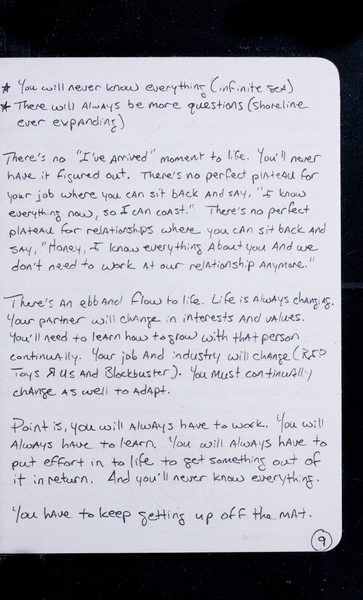 * You will never know everything (infinite sea)
* There will always be more questions (shoreline
ever expanding)
There's no "I've arrived" moment to life. You'll never
have it figured out. There's no perfect plateau for
your job where you can sit back and say, "I know
everything now, so I can coast." There's no perfect
plateau for relationships where you can sit back and
say, "Honey, I know everything about you and we
don't need to work at our relationship anymore."
There's an ebb and flow to life. Life is always changing.
Your partner will change in interests and values.
You'll need to learn how to grow with that person
continually. Your job and industry will change (RIP
Toys Я Us and Blockbuster). You must continually
change as well to adapt.
Point is, you will always have to work. You will
always have to learn. You will always have to
put effort in to life to get something out of
it in return. And you'll never know everything.
You have to keep getting up off the mat.
9